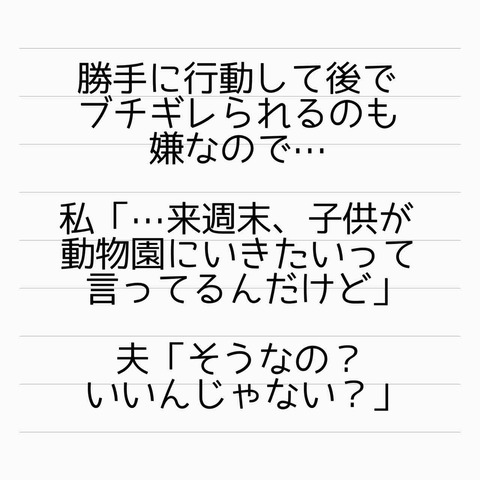 勝手に行動して後で
ブチギレられるのも
嫌なので…
私「…来週末、子供が
動物園にいきたいって
言ってるんだけど」
夫「そうなの？
いいんじゃない？」